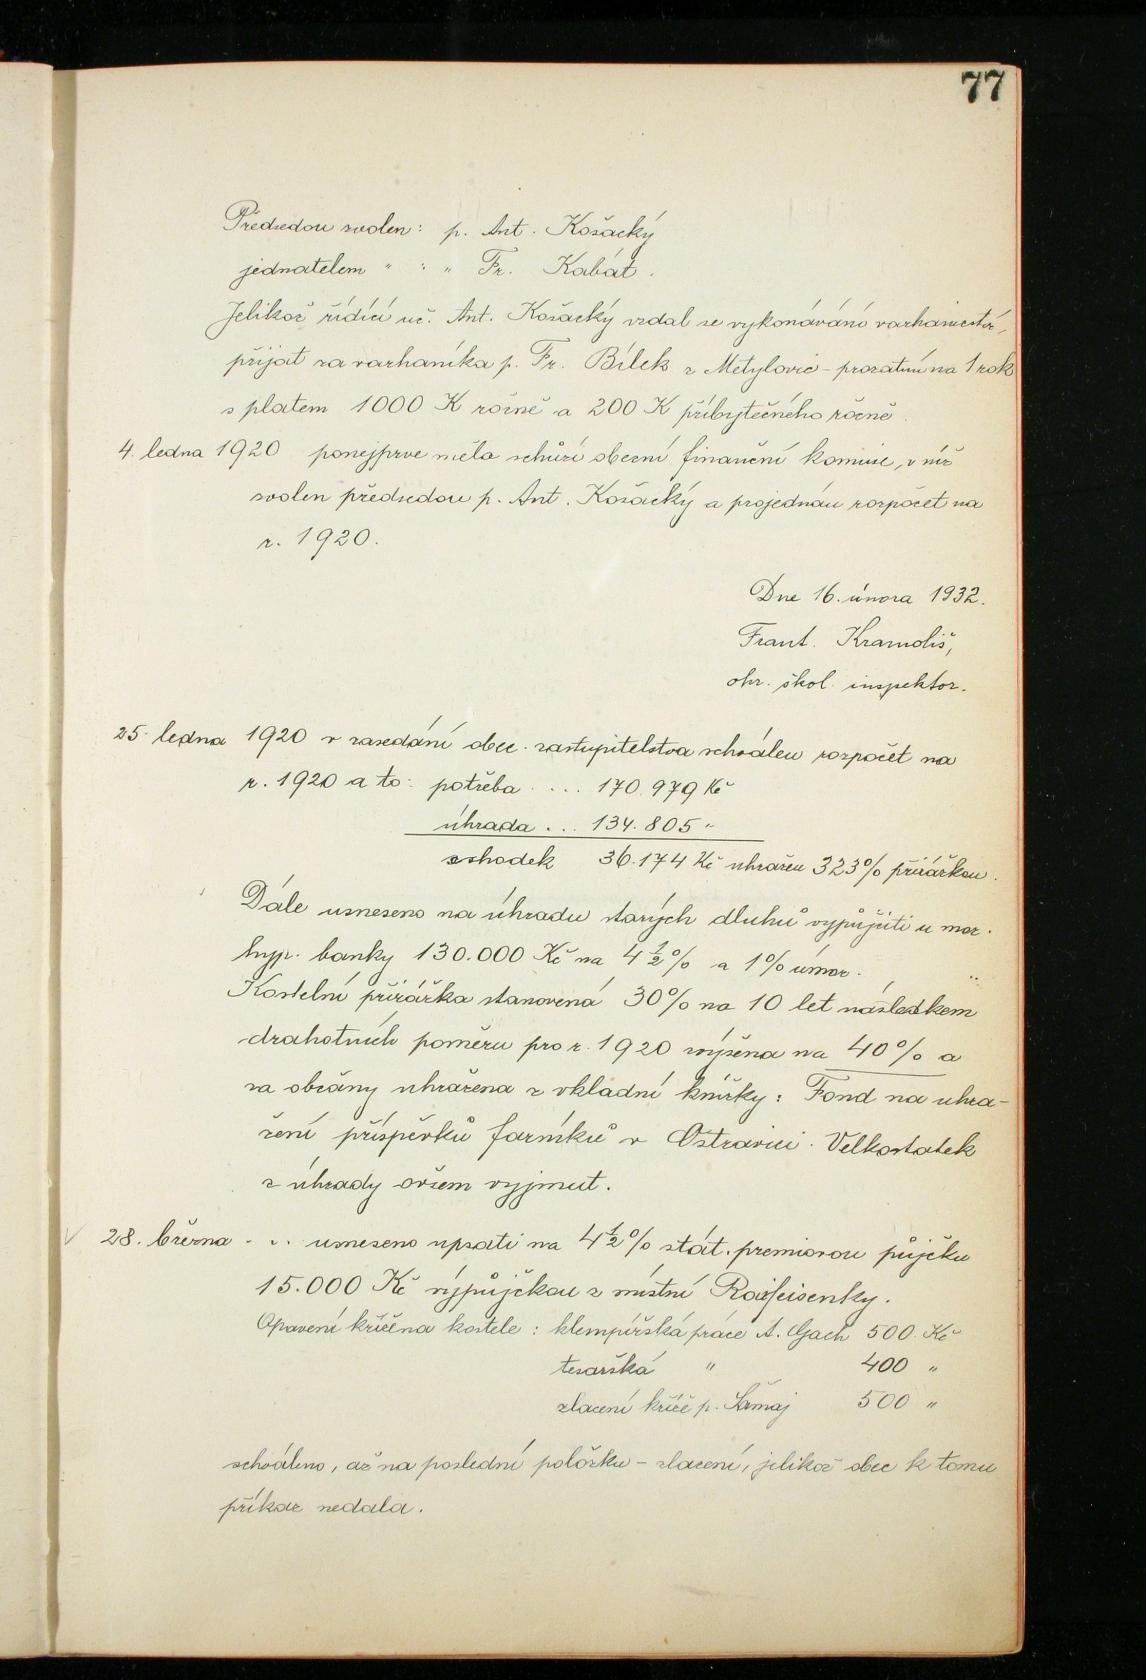 77
Předsedou zvolen: p. Ant. Kožacký
jednatelem " : " Fr. Kabát.
Jelikož řídící uč. Ant. Kožacký vzdal se vykonávání varhanictví,
přijat za varhaníka p. Fr. Bílek z Metylovic - prozatím na 1 rok
s platem 1000 K ročně a 200 K příbytečného ročně.
4. ledna 1920 ponejprve měla schůzi obecní finanční komise, v níž
zvolen předsedou p. Ant. Kožacký a projednán rozpočet na
r. 1920.
Dne 16. února 1932.
Frant. Kramoliš,
okr. škol. inspektor.
25. ledna 1920 v zasedání obec. zastupitelstva schválen rozpočet na
r. 1920 a to: potřeba .... 170.979 Kč
úhrada ... 134.805 "
schodek 36.174 Kč uhražen 323% přirážkou.
Dále usneseno na úhradu starých dluhů vypůjčiti u mor.
hyp. banky 130.000 Kč na 4 1/2 % a 1% úmor.
Kostelní přirážka stanovená 30% na 10 let následkem
drahotních poměru pro r. 1920 zvýšena na 40% a
za občany uhražena z vkladní knížky: Fond na uhra-
zení příspěvků farníků v Ostravici. Velkostatek
z úhrady ovšem vyjmut.
28. března - .. usneseno upsati na 4 1/2 % stát. premiovou půjčku
15.000 Kč výpůjčkou z místní Raiffeisenky.
Opravení kříče na kostele: klempířská práce A. Gach 500 Kč
tesařská " 400 "
zlacení kříče p. 500 "
schváleno, až na poslední položku - zlacení, jelikož obec k tomu
příkaz nedala.